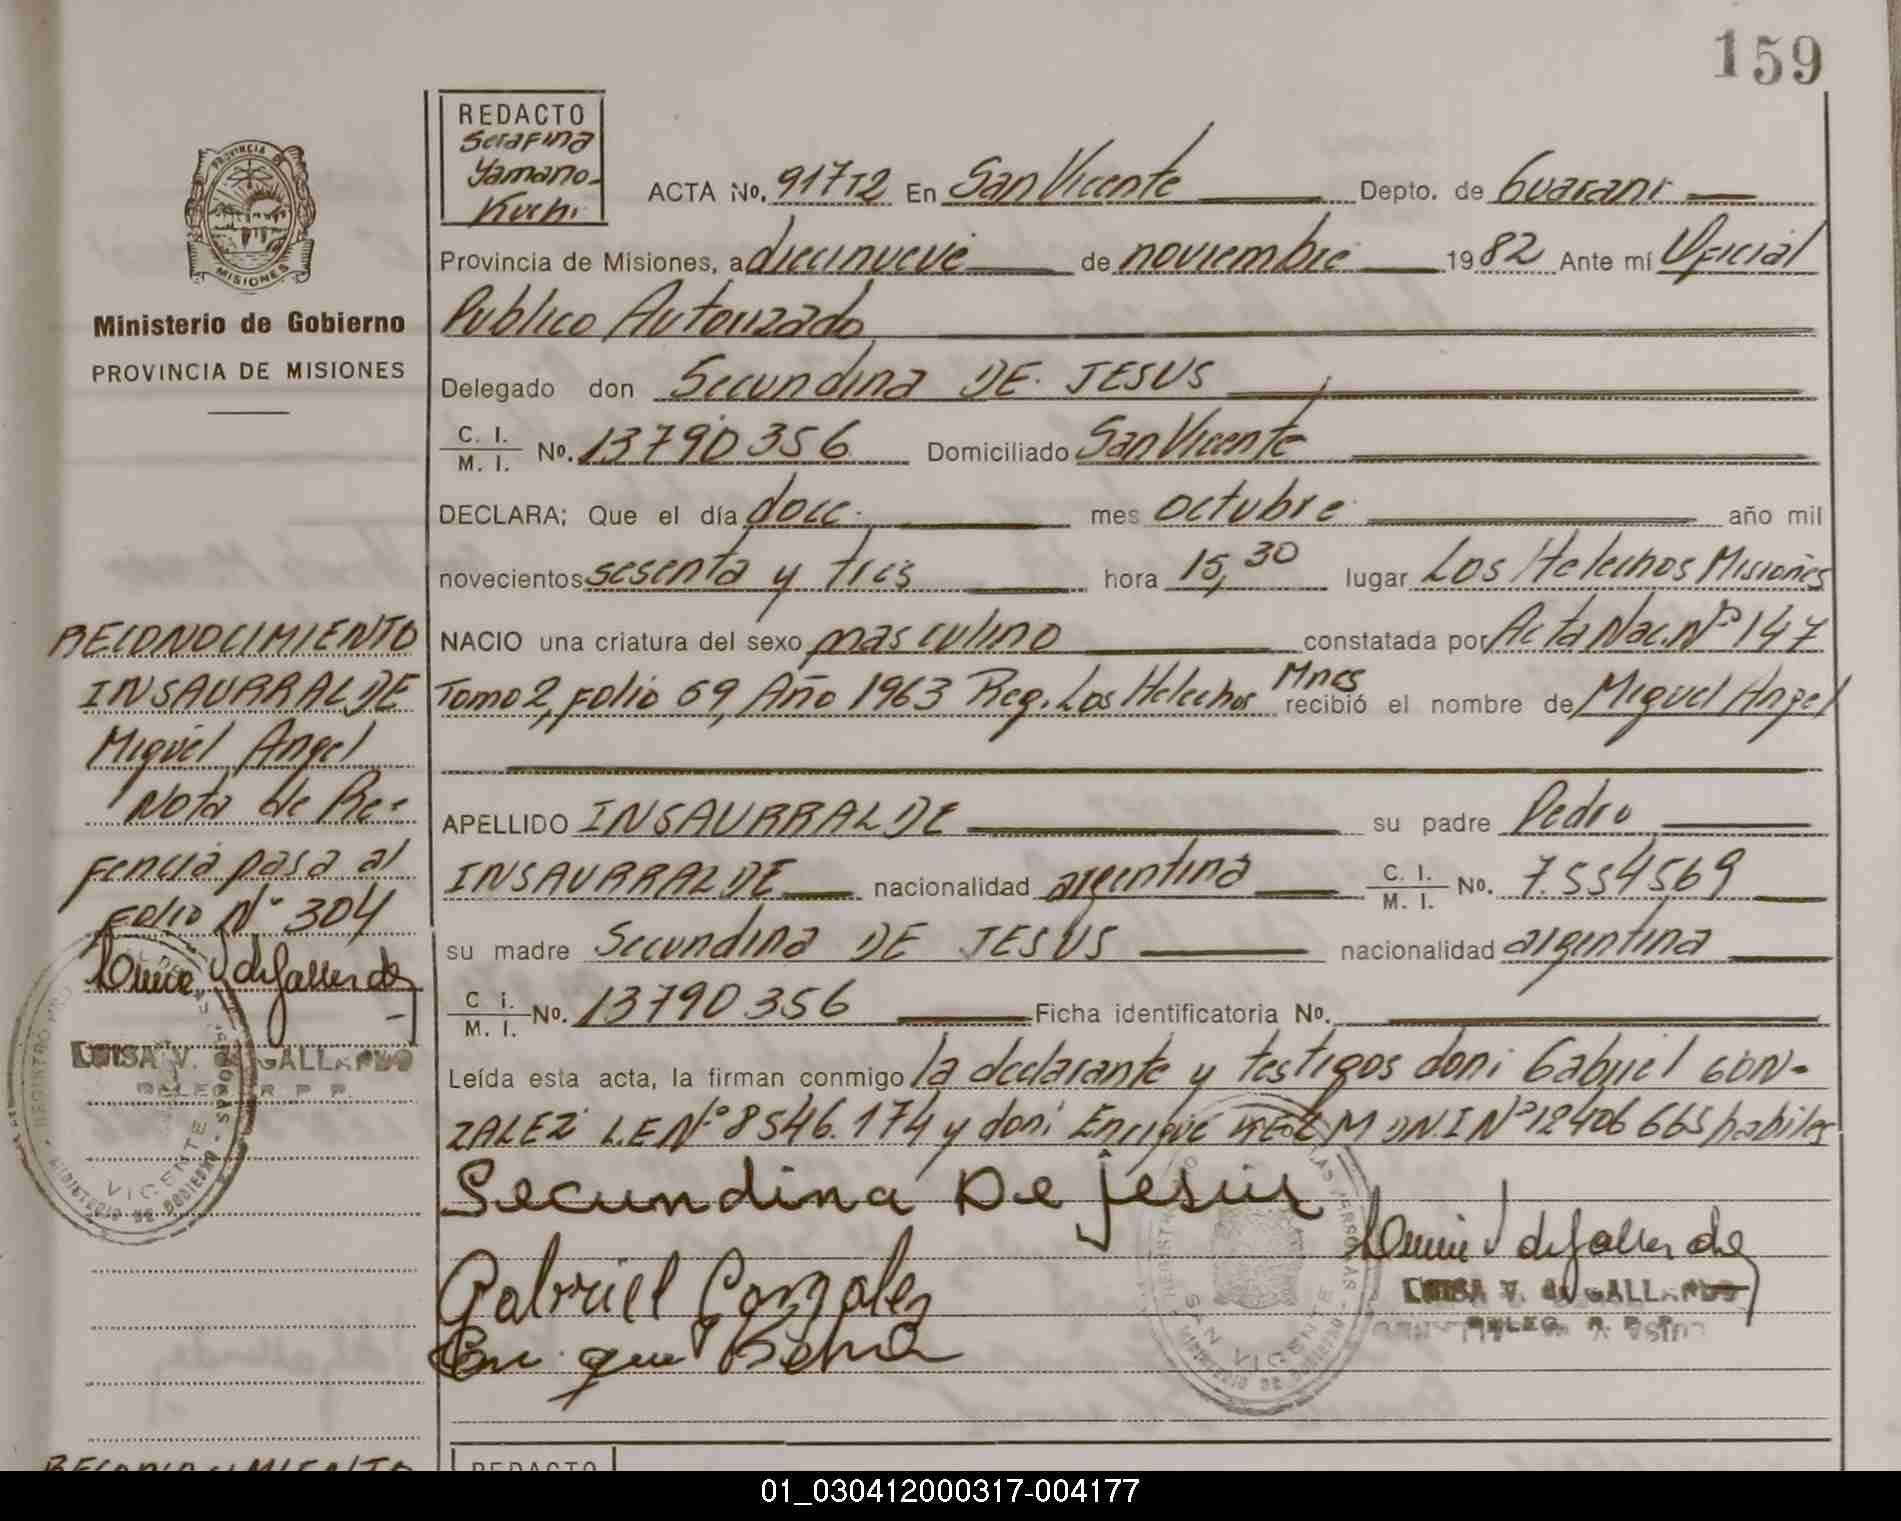 159
REDACTO
Serafina
Yamano-
Kuchi
PROVINCIA DE
MISIONES
Ministerio de Gobierno
PROVINCIA DE MISIONES
ACTA No. 917T2 En San Vicente Depto. de Guarani
Provincia de Misiones, a diecinueve de noviembre 1982 Ante mí Oficial
Publico Autorizado
Delegado don Secundina DE JESUS
C. I. M. I. No. 13790356 Domiciliado San Vicente
DECLARA; Que el día doce mes octubre año mil
novecientos sesenta y tres hora 15,30 lugar Los Helechos Misiones
NACIO una criatura del sexo masculino constatada por Acta Nac. Nº 147
Tomo 2, folio 69, Año 1963 Reg. Los Helechos Mnes recibió el nombre de Miguel Angel
APELLIDO INSAURRALDE su padre Pedro
INSAURRALDE nacionalidad argentina C. I. M. I. No. 7.554569
su madre Secundina DE JESUS nacionalidad argentina
C i. M. I. No. 13790356 Ficha identificatoria No.
Leída esta acta, la firman conmigo la declarante y testigos don: Gabriel GON-
ZALEZ L.E Nº 8546.174 y don: Enrique DNI Nº 12406665 habiles
Secundina De jesus
Gabriel Gonzalez
Enrique
LUISA V. de GALLARDO
DELEG. R. P. P.
SAN VICENTE
RECONOCIMIENTO
INSAURRALDE
Miguel Angel
Nota de Re=
fencia pasa al
Folio Nº 304
LUISA V. de GALLARDO
DELEG. R. P. P.
VICENTE
RECONOCIMIENTO
REDACTO
01_030412000317-004177